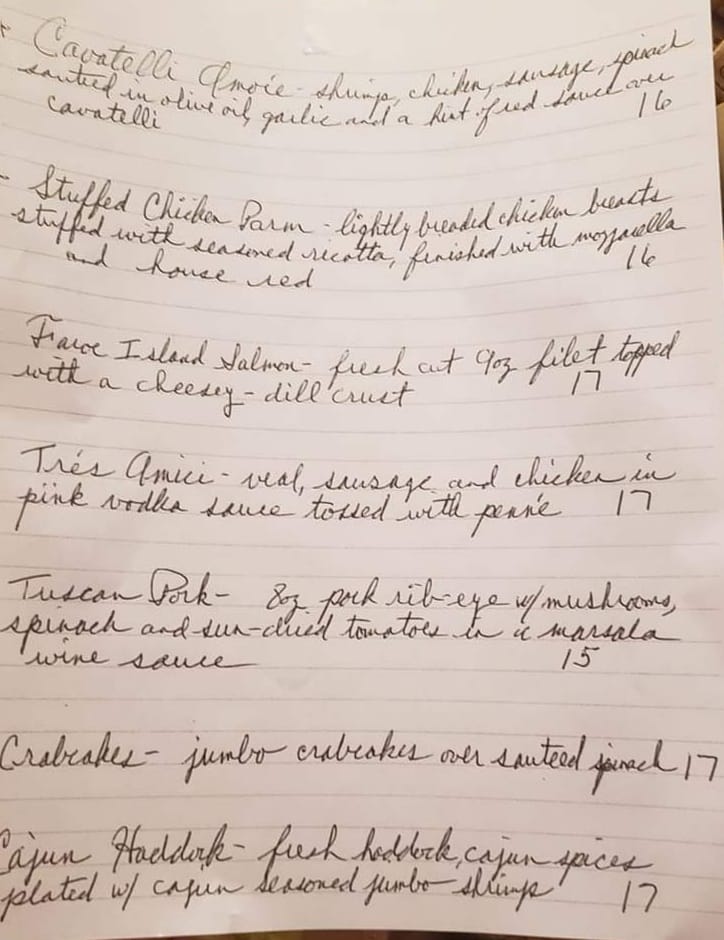 Cavatelli Amore - shrimp, chicken, sausage, spinach
sautéed in olive oil, garlic and a hint of red sauce over
cavatelli 16
- Stuffed Chicken Parm - lightly breaded chicken breasts
stuffed with seasoned ricotta, finished with mozzarella
and house red 16
Faroe Island Salmon - fresh cut 9oz filet topped
with a cheesey - dill crust 17
Trés Amici - veal, sausage and chicken in
pink vodka sauce tossed with penné 17
Tuscan Pork - 8oz pork rib-eye w/ mushrooms,
spinach and sun-dried tomatoes in a marsala
wine sauce 15
Crabcakes - jumbo crabcakes over sauteed spinach 17
Cajun Haddock - fresh haddock, cajun spices
plated w/ cajun seasoned jumbo shrimp 17